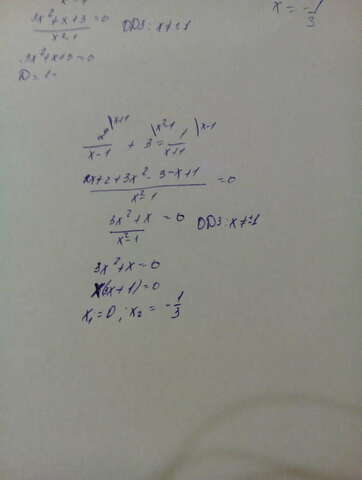 3x²+x+3=0
x²-1
ОДЗ: x≠±1
x = -1/3
3x²+x+3=0
D=1-
2 |x+1 / x-1 + 3 |x²-1 = 1 |x-1 / x+1
2x+2+3x²-3-x+1 / x²-1 =0
3x²+x / x²-1 = 0 ОДЗ: x≠±1
3x²+x=0
x(3x+1)=0
x₁=0; x₂ = -1/3